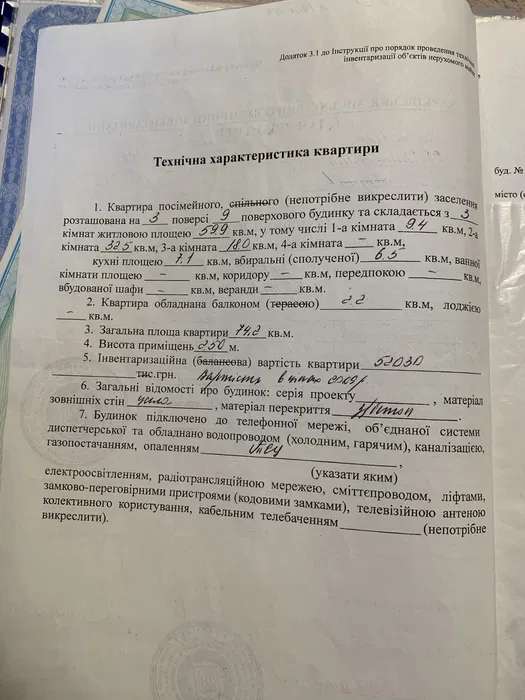 Додаток 3.1 до Інструкції про порядок проведення технічної
інвентаризації об'єктів нерухомого майна
Технічна характеристика квартири
1. Квартира посімейного, спільного (непотрібне викреслити) заселення
розташована на 3 поверсі 9 поверхового будинку та складається з 3
кімнат житловою площею 59.9 кв.м, у тому числі 1-а кімната 9.4 кв.м, 2-а
кімната 32.5 кв.м, 3-а кімната 18.0 кв.м, 4-а кімната – кв.м,
кухні площею 7.1 кв.м, вбиральні (сполученої) 6.5 кв.м, ванної
кімнати площею – кв.м, коридору – кв.м, передпокою – кв.м,
вбудованої шафи – кв.м, веранди – кв.м.
2. Квартира обладнана балконом (терасою) 2.2 кв.м, лоджією
– кв.м.
3. Загальна площа квартири 74.2 кв.м.
4. Висота приміщень 2.50 м.
5. Інвентаризаційна (балансова) вартість квартири 52030
тис.грн.
6. Загальні відомості про будинок: серія проекту , матеріал
зовнішніх стін , матеріал перекриття .
7. Будинок підключено до телефонної мережі, об'єднаної системи
диспетчерської та обладнано водопроводом (холодним, гарячим), каналізацією,
газопостачанням, опаленням ,
(указати яким)
електроосвітленням, радіотрансляційною мережею, сміттєпроводом, ліфтами,
замково-переговірними пристроями (кодовими замками), телевізійною антеною
колективного користування, кабельним телебаченням (непотрібне
викреслити).
буд. №
місто (